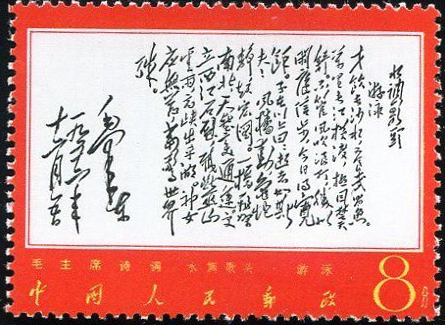 水调歌头
游泳
才饮长沙水又食武昌鱼
万里长江横渡极目楚
天舒不管风吹浪打胜似
闲庭信步今日得宽
馀子在川上曰逝者如斯
夫风樯动龟蛇
静起宏图一桥飞架
南北天堑变通途更
立西江石壁截断巫山
云雨高峡出平湖神女
应无恙当惊世界
殊
毛泽东
一九五六年
十二月五日
毛主席诗词 水调歌头 游泳
中国人民邮政 8分